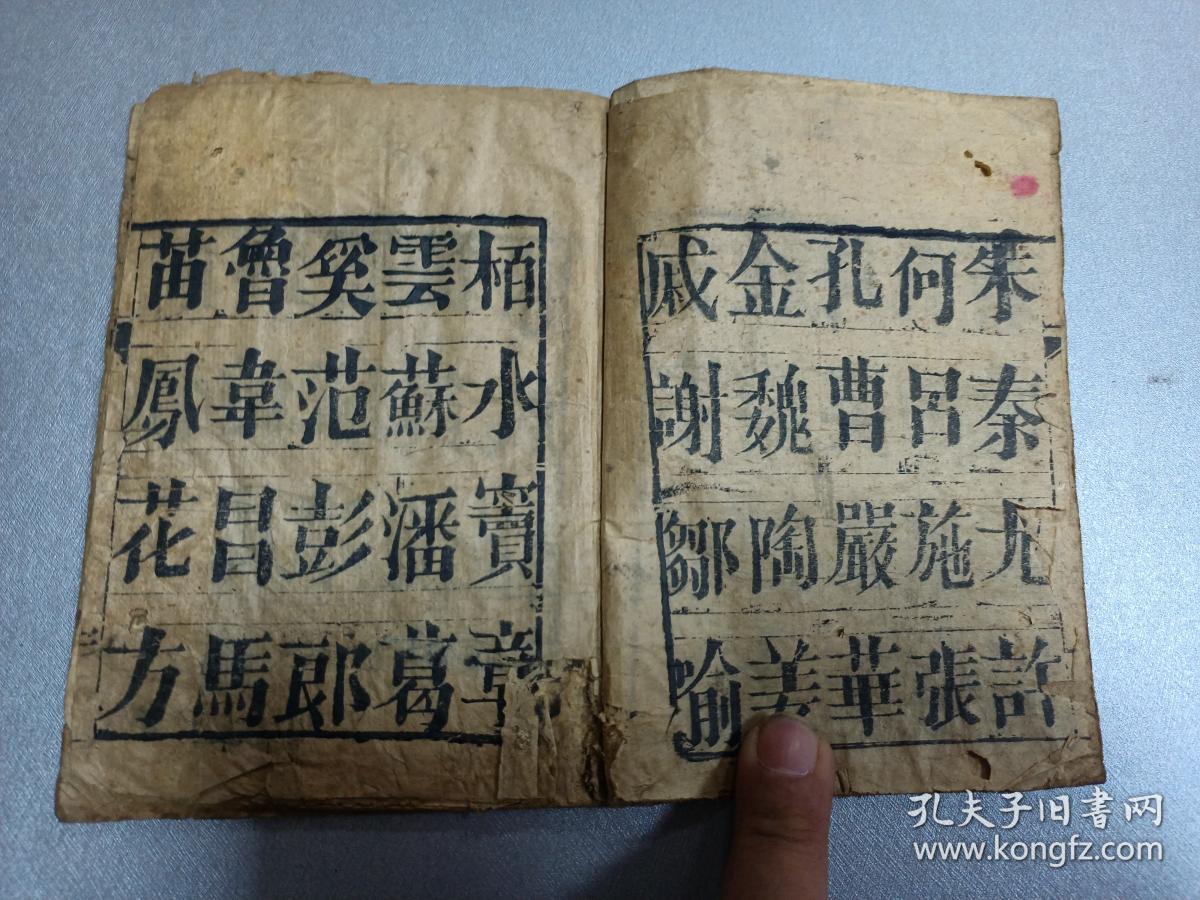 朱秦尤許
何呂施張
孔曹嚴華
金魏陶姜
戚謝鄒喻
栢水竇章
雲蘇潘葛
奚范彭郎
魯韋昌馬
苗鳳花方
孔夫子旧書网
www.kongfz.com